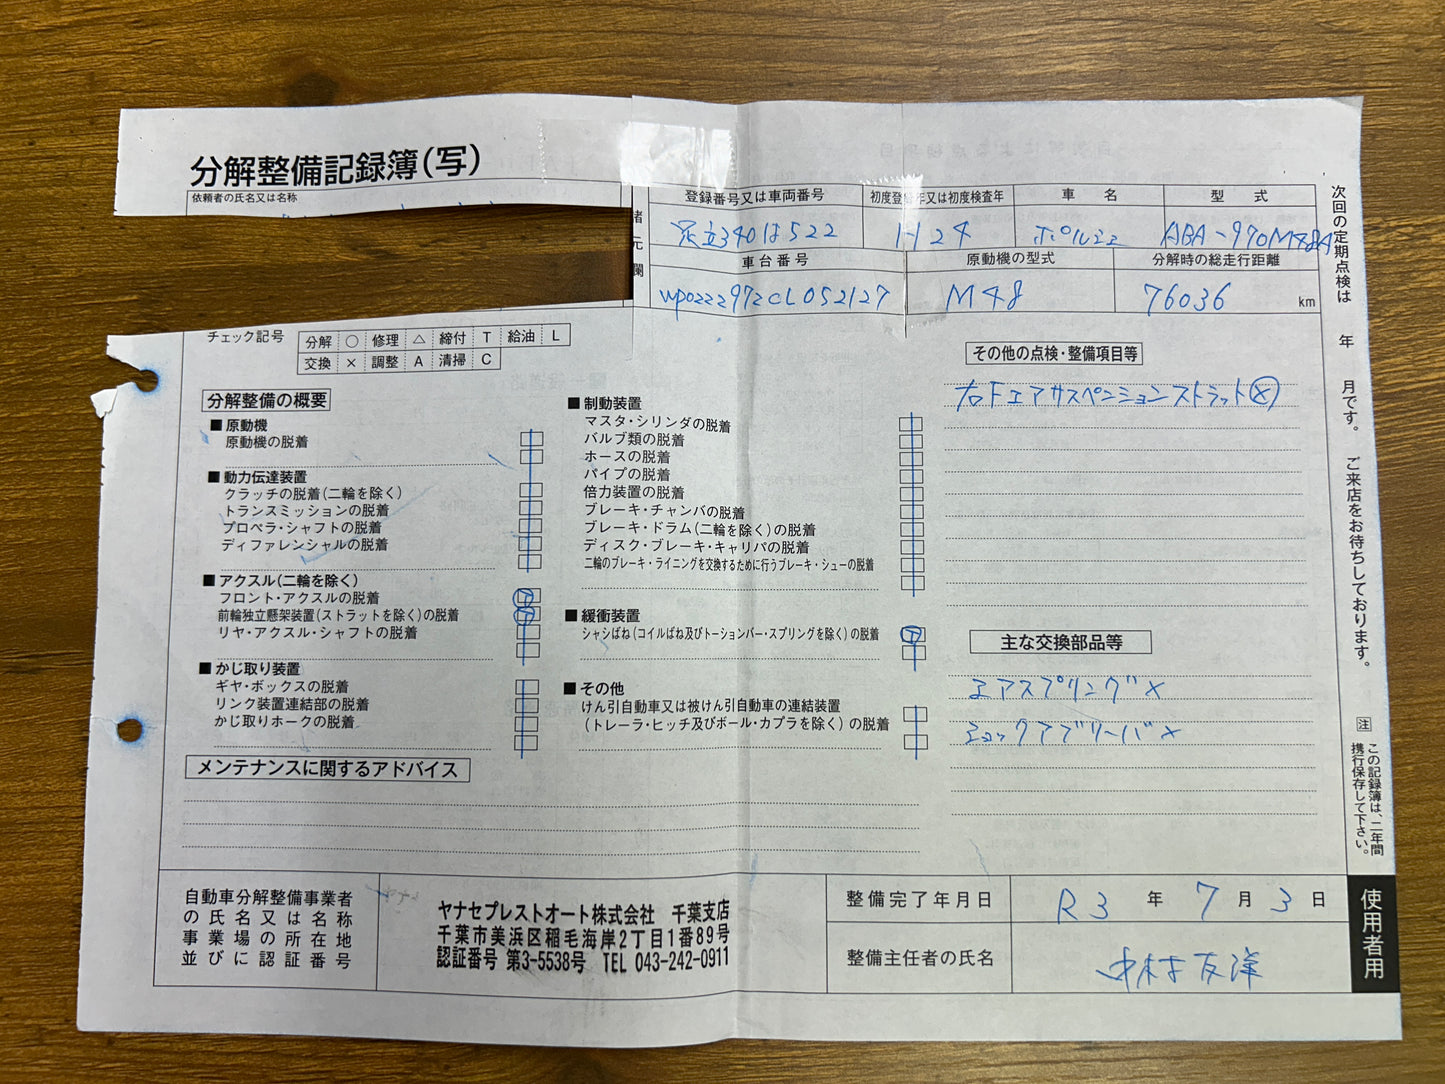 分解整備記録簿(写)
依頼者の氏名又は名称
諸元欄
登録番号又は車両番号
初度登録年又は初度検査年
車名
型式
足立340は522
H24
ポルシェ
ABA-970M48A
車台番号
原動機の型式
分解時の総走行距離
WP0ZZZ97ZCL052127
M48
76036 km
チェック記号
分解 ○ 修理 △ 締付 T 給油 L
交換 × 調整 A 清掃 C
分解整備の概要
■ 原動機
原動機の脱着
■ 動力伝達装置
クラッチの脱着(二輪を除く)
トランスミッションの脱着
プロペラ・シャフトの脱着
ディファレンシャルの脱着
■ アクスル(二輪を除く)
フロント・アクスルの脱着 T
前輪独立懸架装置(ストラットを除く)の脱着 T
リヤ・アクスル・シャフトの脱着
■ かじ取り装置
ギヤ・ボックスの脱着
リンク装置連結部の脱着
かじ取りホークの脱着
■ 制動装置
マスタ・シリンダの脱着
バルブ類の脱着
ホースの脱着
パイプの脱着
倍力装置の脱着
ブレーキ・チャンバの脱着
ブレーキ・ドラム(二輪を除く)の脱着
ディスク・ブレーキ・キャリパの脱着
二輪のブレーキ・ライニングを交換するために行うブレーキ・シューの脱着
■ 緩衝装置
シャシばね(コイルばね及びトーションバー・スプリングを除く)の脱着 T
■ その他
けん引自動車又は被けん引自動車の連結装置
(トレーラ・ヒッチ及びボール・カプラを除く)の脱着
その他の点検・整備項目等
右Fエアサスペンションストラット×
主な交換部品等
エアスプリング×
ショックアブソーバ×
メンテナンスに関するアドバイス
自動車分解整備事業者
の氏名又は名称
事業場の所在地
並びに認証番号
ヤナセプレストオート株式会社 千葉支店
千葉市美浜区稲毛海岸2丁目1番89号
認証番号 第3-5538号 TEL 043-242-0911
整備完了年月日
R3年7月3日
整備主任者の氏名
中村友洋
次回の定期点検は 年 月です。 ご来店をお待ちしております。
注 この記録簿は、二年間
携行保存して下さい。
使用者用